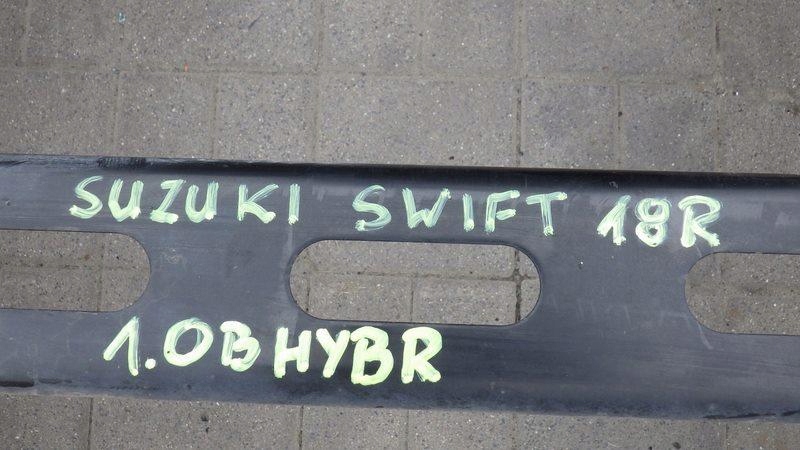 SUZUKI SWIFT 18R
1.0B HYBR